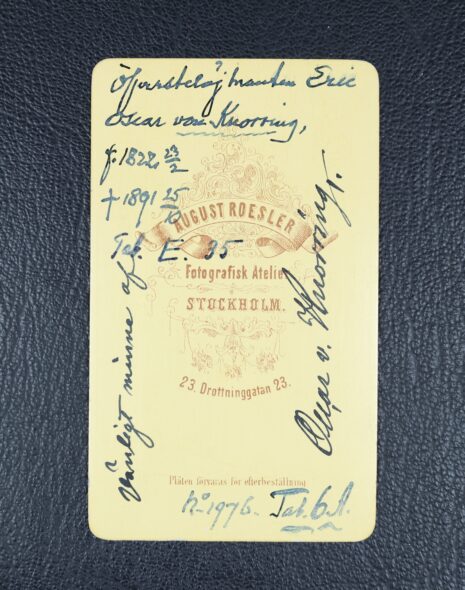 Öfverstelöjtnanten Eric
Oscar von Knorring,
f. 1822 23/2
† 1891 25/10
Tab. E. 35
AUGUST ROESLER
Fotografisk Atelier
STOCKHOLM.
23. Drottninggatan 23.
Vänligt minne af
Oscar v. Knorring.
Plåten förvaras för efterbeställning
No 1976. Tab. 6.A.